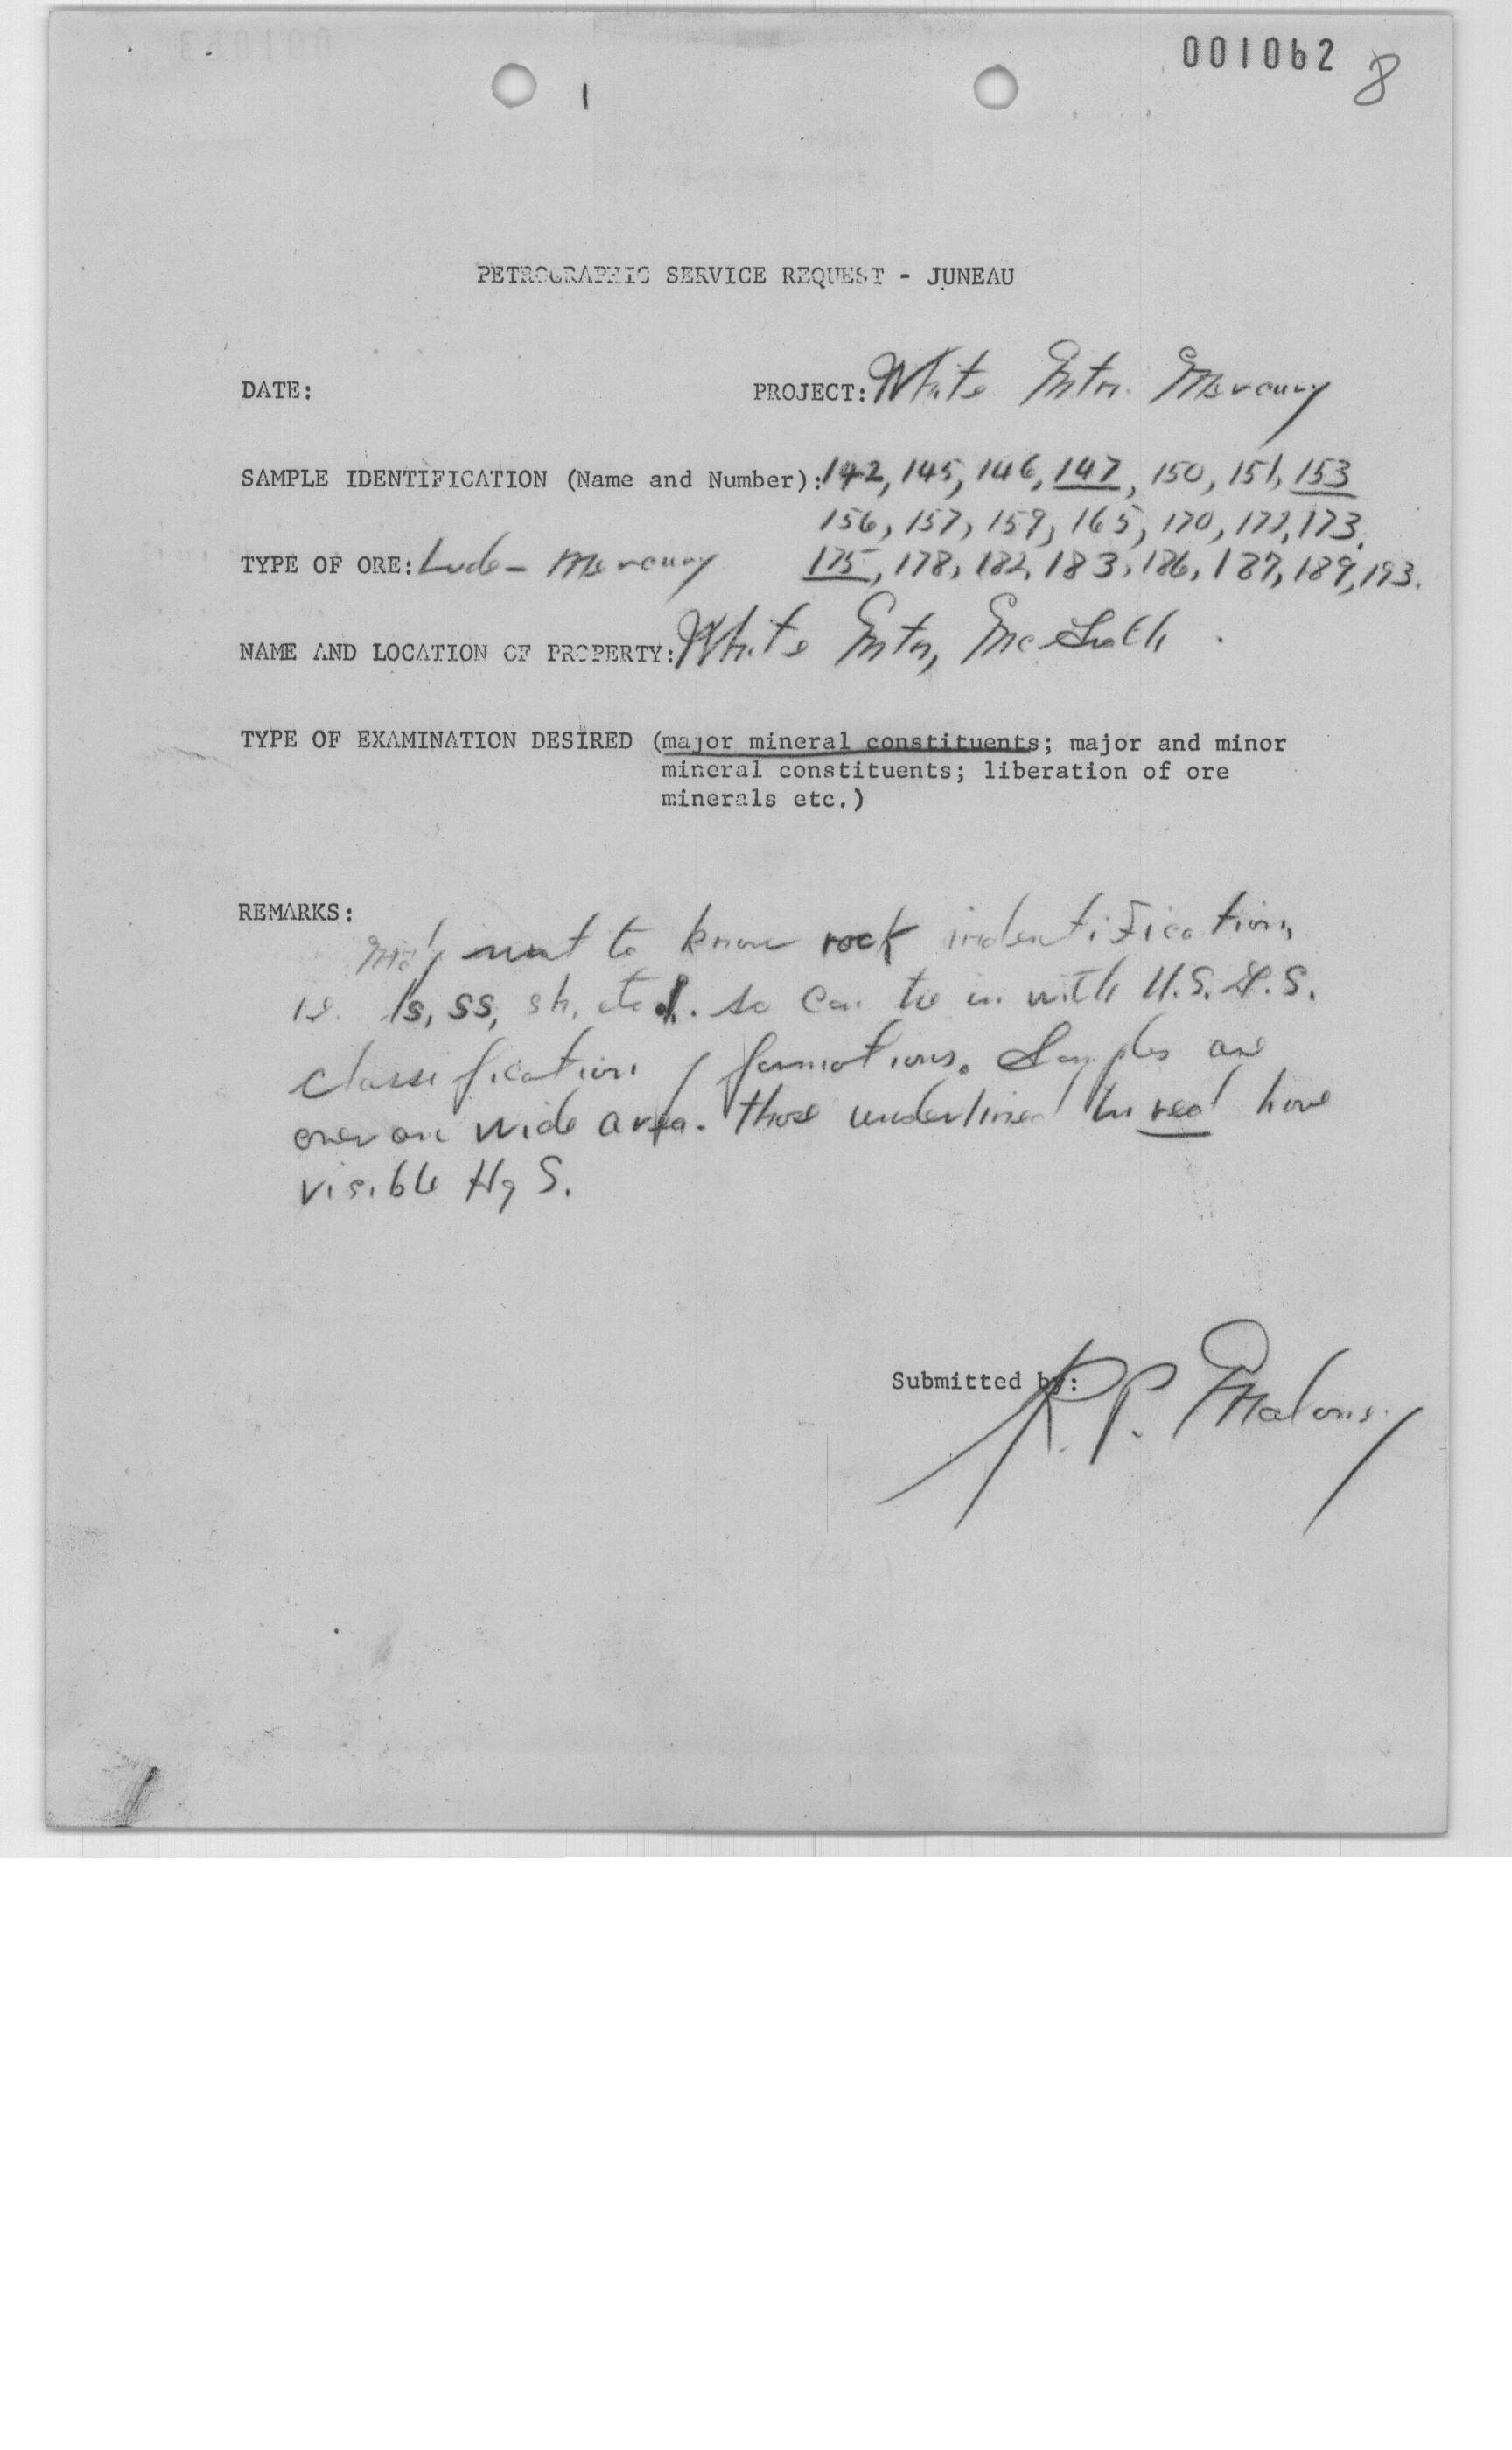 001062 8
1
PETROGRAPHIC SERVICE REQUEST - JUNEAU
DATE: PROJECT: White Mtn. Mercury
SAMPLE IDENTIFICATION (Name and Number): 142, 145, 146, 147, 150, 151, 153
156, 157, 159, 165, 170, 172, 173,
TYPE OF ORE: Lode - Mercury 175, 178, 182, 183, 186, 187, 189, 193.
NAME AND LOCATION OF PROPERTY: White Mtn, McGrath.
TYPE OF EXAMINATION DESIRED (major mineral constituents; major and minor
mineral constituents; liberation of ore
minerals etc.)
REMARKS:
want to know rock indentification,
ie. ls, ss, sh, etc. so can tie in with U.S.G.S.
classification formations. Samples are
over a wide area. Those underlined in red have
visible HgS.
Submitted by: R.P. Maloney